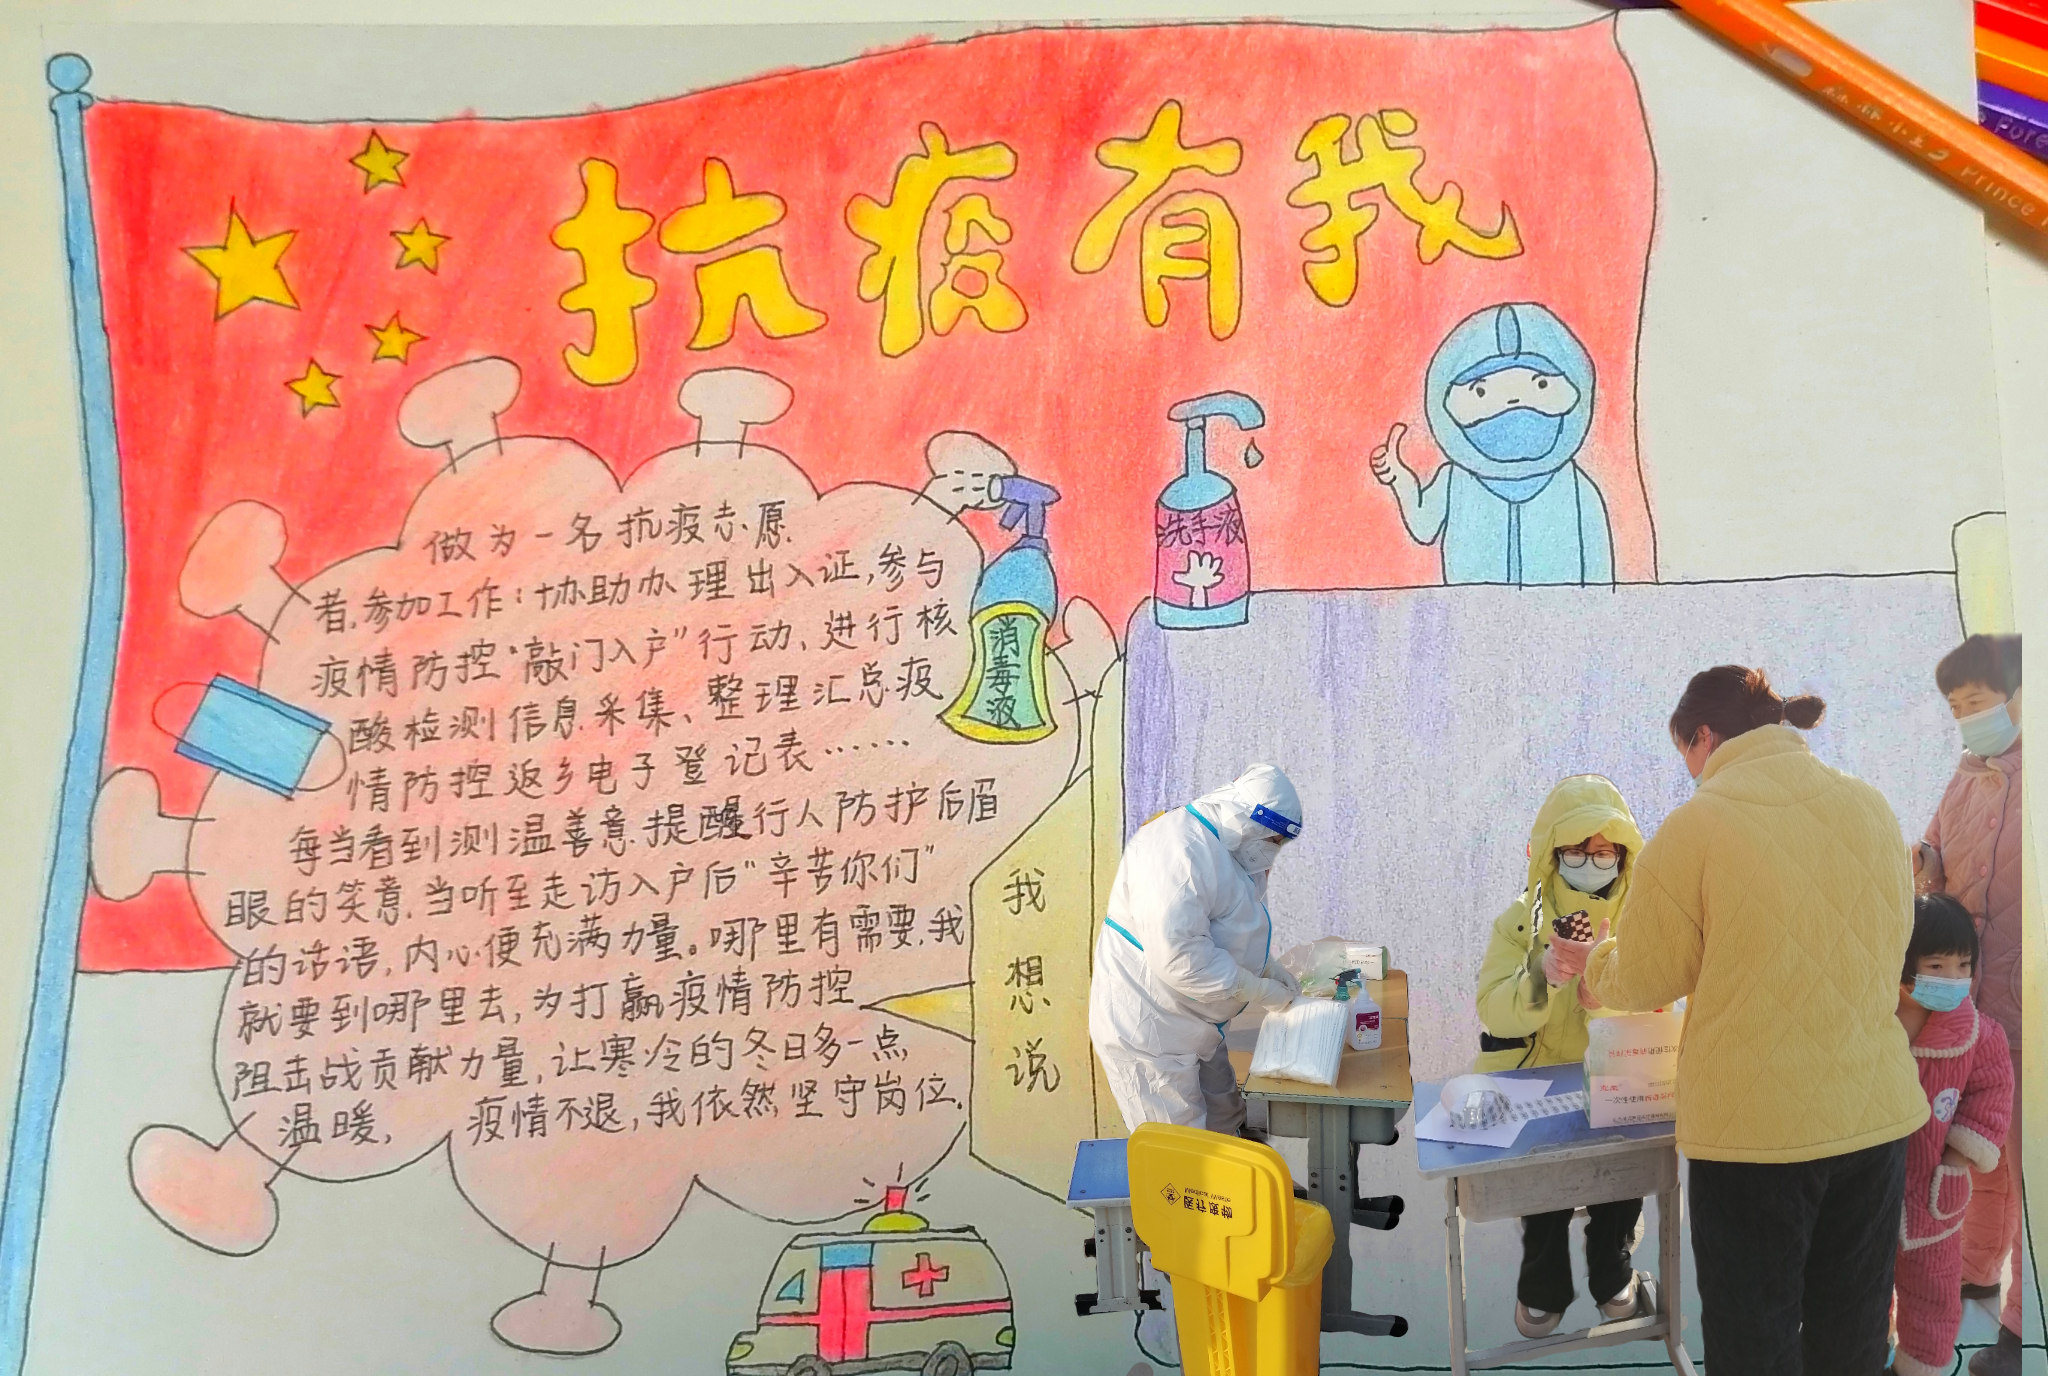 抗疫有我
做为一名抗疫志愿
者,参加工作:协助办理出入证,参与
疫情防控“敲门入户”行动、进行核
酸检测信息采集、整理汇总疫
情防控返乡电子登记表……
每当看到测温善意提醒行人防护后眉
眼的笑意,当听至走访入户后“辛苦你们”
的话语,内心便充满力量。哪里有需要,我
就要到哪里去,为打赢疫情防控
阻击战贡献力量,让寒冷的冬日多一点
温暖, 疫情不退,我依然坚守岗位.
消毒液
洗手液
我想说
医疗废物
Medical Waste
一次性使用
Prince